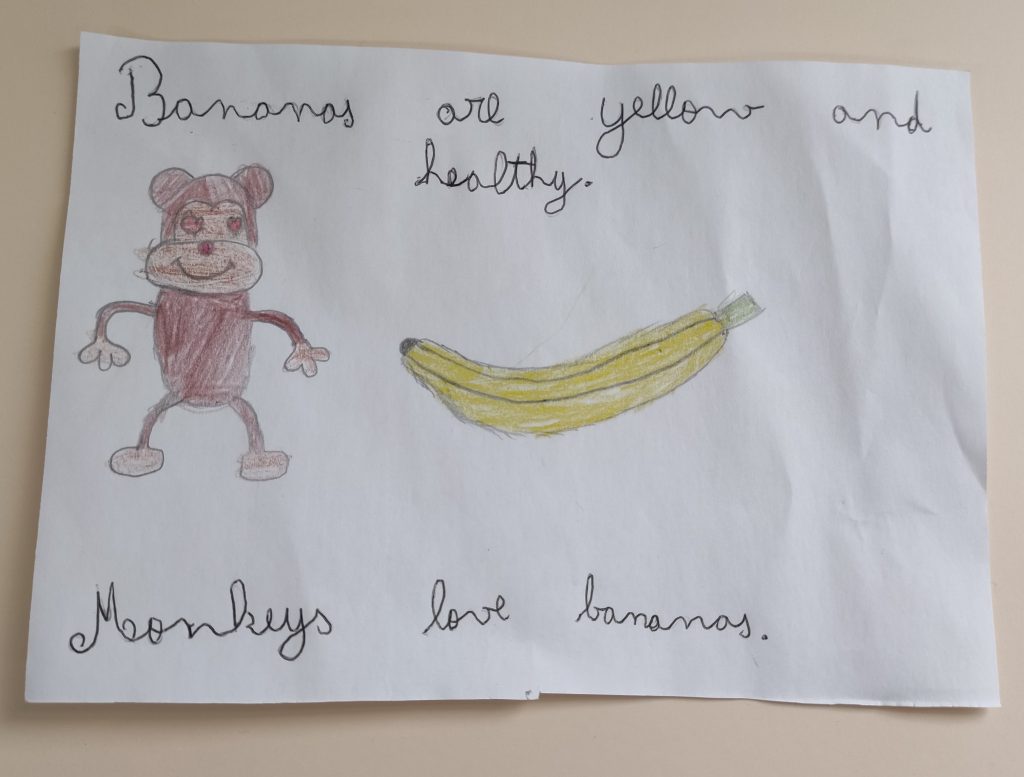 Bananas are yellow and
healthy.
Monkeys love bananas.